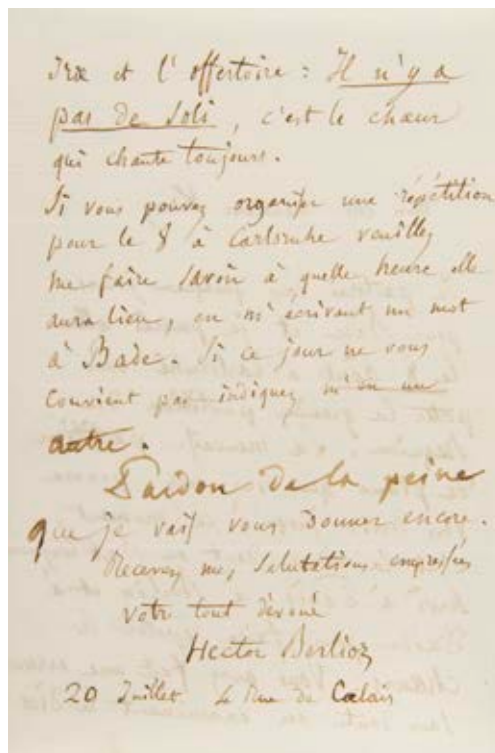 Iræ et l'offertoire : Il n'y a
pas de Soli, c'est le chœur
qui chante toujours.
Si vous pouvez organiser une répétition
pour le 8 à Carlsruhe veuillez
me faire savoir à quelle heure elle
aura lieu, en m'écrivant un mot
à Bade. Si ce jour ne vous
convient pas indiquez m'en un
autre.
Pardon de la peine
que je vais vous donner encore.
Recevez mes salutations empressées
votre tout dévoué
Hector Berlioz
20 Juillet 4 Rue de Calais